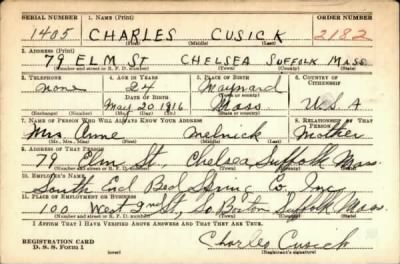 SERIAL NUMBER 1. NAME (Print) ORDER NUMBER
1405 CHARLES CUSICK 2182
(First) (Middle) (Last)
2. ADDRESS (Print)
79 ELM ST CHELSEA SUFFOLK MASS
(Number and street or R. F. D. number) (Town) (County) (State)
3. TELEPHONE 4. AGE IN YEARS 5. PLACE OF BIRTH 6. COUNTRY OF CITIZENSHIP
none 24 Maynard
DATE OF BIRTH (Town or county)
May 20 1916 Mass. U.S.A
(Exchange) (Number) (Mo.) (Day) (Yr.) (State or country)
7. NAME OF PERSON WHO WILL ALWAYS KNOW YOUR ADDRESS 8. RELATIONSHIP OF THAT PERSON
Mrs. Anne Melnick Mother
(Mr., Mrs., Miss) (First) (Middle) (Last)
9. ADDRESS OF THAT PERSON
79 Elm St, Chelsea Suffolk Mass.
(Number and street or R. F. D. number) (Town) (County) (State)
10. EMPLOYER'S NAME
South End Bed Spring Co. Inc
11. PLACE OF EMPLOYMENT OR BUSINESS
100 West 2nd St, So. Boston Suffolk Mass.
(Number and street or R. F. D. number) (Town) (County) (State)
I AFFIRM THAT I HAVE VERIFIED ABOVE ANSWERS AND THAT THEY ARE TRUE.
REGISTRATION CARD
D. S. S. FORM 1 (over) Charles Cusick
(Registrant's signature)